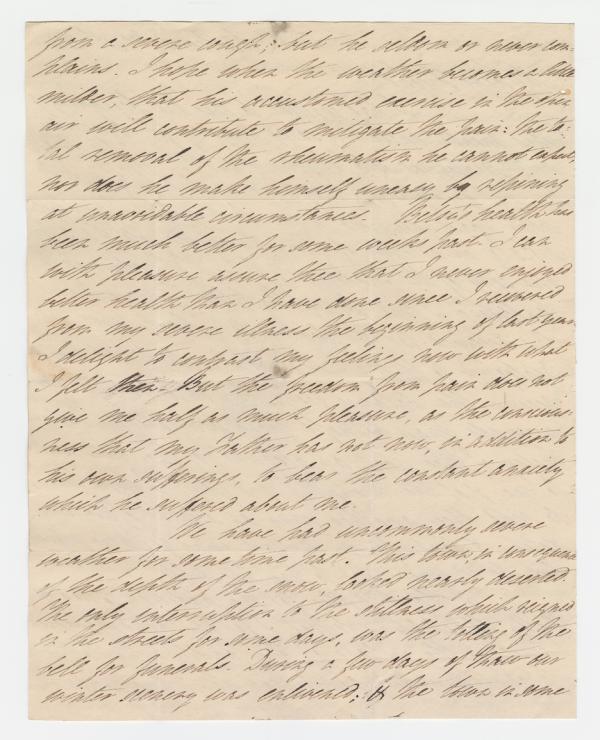 from a severe cough; but he seldom or never com-
plains. I hope when the weather becomes a little
milder, that his accustomed exercise in the open
air will contribute to mitigate the pain: the to-
tal removal of the rheumatism he cannot expect,
nor does he make himself uneasy by repining
at unavoidable circumstances. Betsy's health has
been much better for some weeks past. I can
with pleasure assure thee that I never enjoyed
better health than I have done since I recovered
from my severe illness the beginning of last year.
I delight to contrast my feelings now with what
I felt then. But the freedom from pain does not
give me half as much pleasure, as the conscious-
ness that my Father has not now, in addition to
his own sufferings, to bear the constant anxiety
which he suffered about me.
We have had uncommonly severe
weather for some time past. This town, in consequence
of the depth of the snow, looked nearly deserted.
The only interruption to the stillness which reigned
in the streets for some days, was the tolling of the
bell for funerals. During a few days of thaw our
winter scenery was enlivened; the town in some